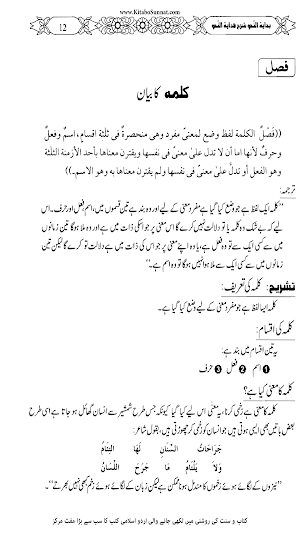 www.KitaboSunnat.com
بداية النحو شرح هداية النحو
12
فصل
کلمہ کا بیان
((فَصْلٌ الكلمة لفظ وضع لمعنىً مفرد وهي منحصرة في ثلثة اقسام، اسمٌ وفعلٌ
وحرفٌ لأنها اما أن لا تدل علىٰ معنىً في نفسها ويقترن معناها بأحد الأزمنة الثلثة
وهو الفعل أو تدلّ علىٰ معنىً في نفسها ولم يقترن معناها به وهو الاسم...))
ترجمہ:
”کلمہ ایک لفظ ہے جو وضع کیا گیا ہے مفرد معنی کے لیے اور وہ بند ہے تین قسموں میں، اسم، فعل اور حرف۔ اس
لیے کہ بے شک وہ کلمہ یا تو دلالت نہیں کرے گا اس معنی پر جو اس کی ذات میں ہے اور وہ ملا ہوگا تین زمانوں
میں سے کسی ایک سے تو وہ فعل ہے، یا وہ اپنے معنی پر جو اس کی ذات میں ہے دلالت تو کرے گا لیکن تین
زمانوں میں سے کسی ایک سے ملا ہوا نہیں ہوگا تو وہ اسم ہے۔“
تشریح: کلمہ کی تعریف:
کلمہ ایسا لفظ ہے جو مفرد معنی کے لیے وضع کیا گیا ہے۔
کلمہ کی اقسام:
یہ تین اقسام میں بند ہے:
❶ اسم ❷ فعل ❸ حرف
کلمہ کا معنی کیا ہے؟
کلمہ کا معنی ہے زخمی کرنا، یہ معنی اس لیے کیا گیا کیونکہ جس طرح شمشیر سے انسان گھائل ہو جاتا ہے اسی طرح
بعض باتیں بھی ایسی ہوتی ہیں جو انسان کو زخمی کر چھوڑتی ہیں، بقول شاعر:
جَرَاحَاتُ السِّنَانِ لَهَا التِئَامُ
وَلاَ يَلْتَامُ مَا جَرَحَ اللِّسَانُ
”نیزوں کے لگائے ہوئے زخموں کا مندمل ہونا ممکن ہے لیکن زبان کے لگائے ہوئے زخم کبھی نہیں بھرتے“۔
کتاب و سنت کی روشنی میں لکھی جانے والی اردو اسلامی کتب کا سب سے بڑا مفت مرکز